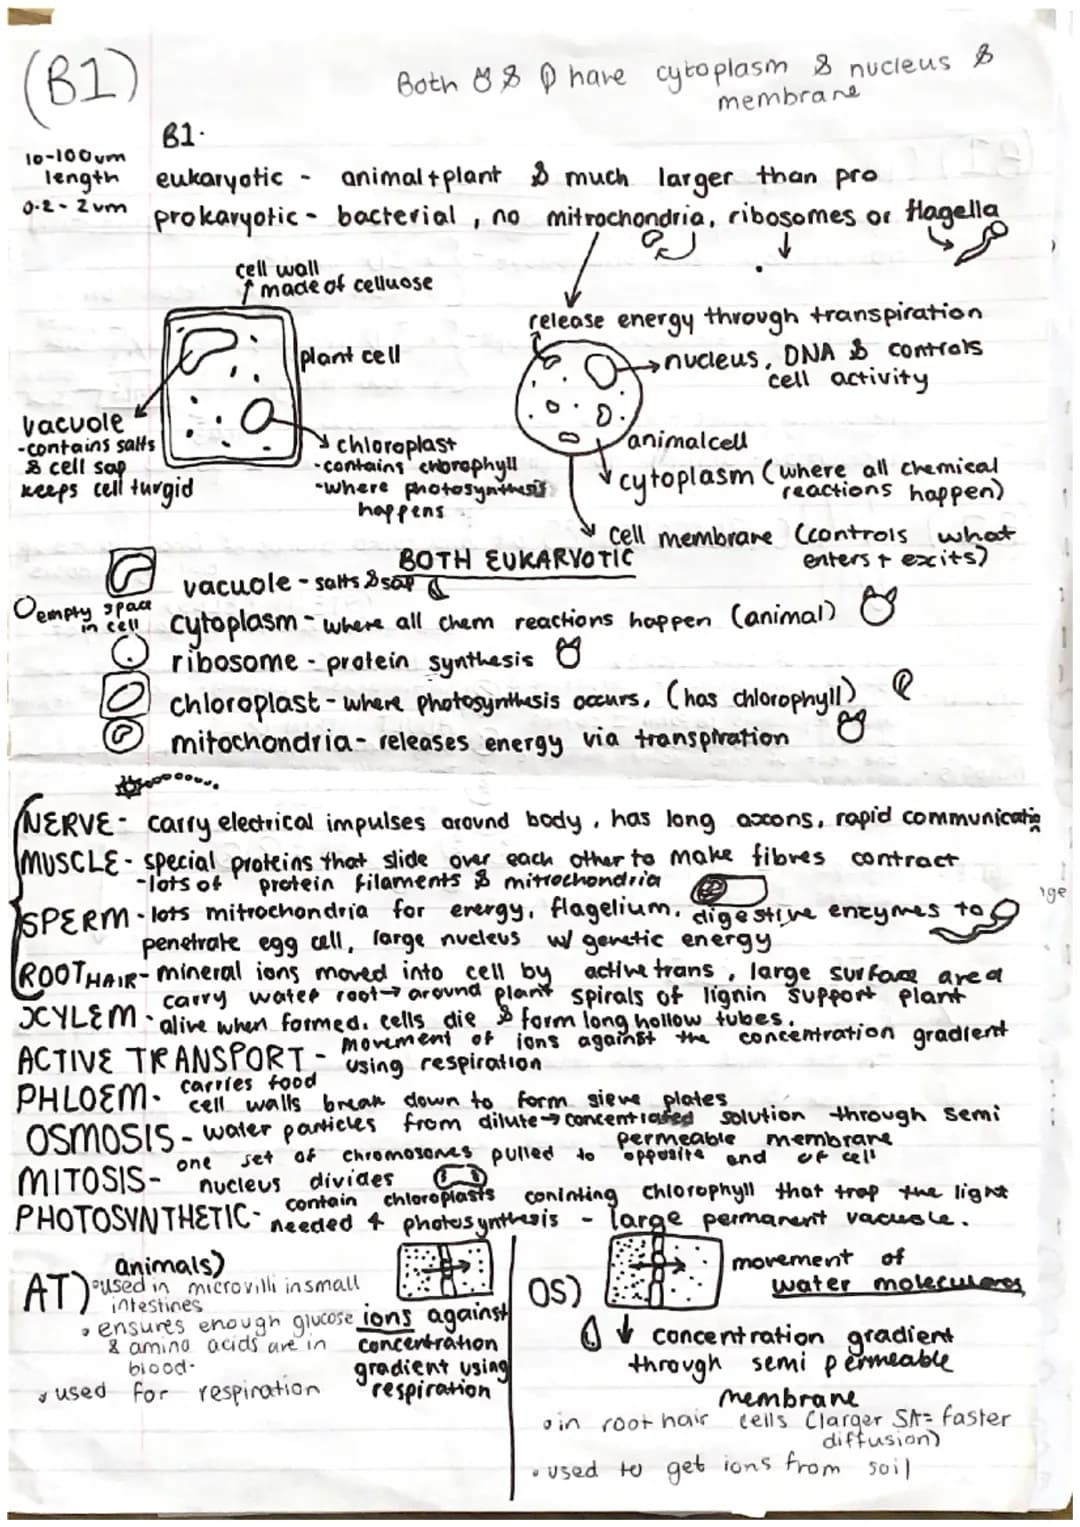 (B1)
Both & have cytoplasm & nucleus &
membrane
B1.
10-100um
length
eukaryotic - animal+plant & much larger than pro
0.2-2um
prokaryotic - bacterial, no mitrochondria, ribosomes or flagella
cell wall
made of celluose
release energy through transpiration
plant cell
nucleus, DNA & controls
cell activity
vacuole
-contains salts
& cell sap
keeps cell turgid
chloroplast
-contains chorophyll
-where photosynthesis
happens
animalcell
cytoplasm (where all chemical
reactions happen)
cell membrane (controls what
enters + excits)
BOTH EUKARYOTIC
vacuole - salts & sap
empty space
in cell
cytoplasm - where all chem reactions happen (animal)
ribosome - protein synthesis
chloroplast - where photosynthesis occurs, (has chlorophyll)
mitochondria - releases energy via transpiration
NERVE - carry electrical impulses around body, has long axons, rapid communicatin
MUSCLE - special proteins that slide over each other to make fibres contract
-lots of protein filaments & mitrochondria
SPERM - lots mitrochondria for energy, flagelium, digestive enzymes to
penetrate egg cell, large nucleus w/ genetic energy
ROOT HAIR - mineral ions moved into cell by active trans, large surface area
carry water root→around plant spirals of lignin support plant
XYLEM - alive when formed, cells die & form long hollow tubes.
ACTIVE TRANSPORT - movement of ions against the concentration gradient
using respiration
PHLOEM - carries food
cell walls break down to form sieve plates
OSMOSIS - water particles from dilute→concentrated solution through semi
permeable membrane
MITOSIS - one set of chromosomes pulled to opposite end of cell
nucleus divides
PHOTOSYNTHETIC - contain chloroplasts coninting chlorophyll that trap the light
needed 4 photosynthesis - large permanent vacuole.
AT) animals)
•used in microvilli in small
intestines
•ensures enough glucose
& amino acids are in
blood.
•used for respiration
ions against
concentration
gradient using
respiration
OS)
movement of
water moleculares
↓ concentration gradient
through semi permeable
membrane
•in root hair cells (larger SA= faster
diffusion)
•used to get ions from soil